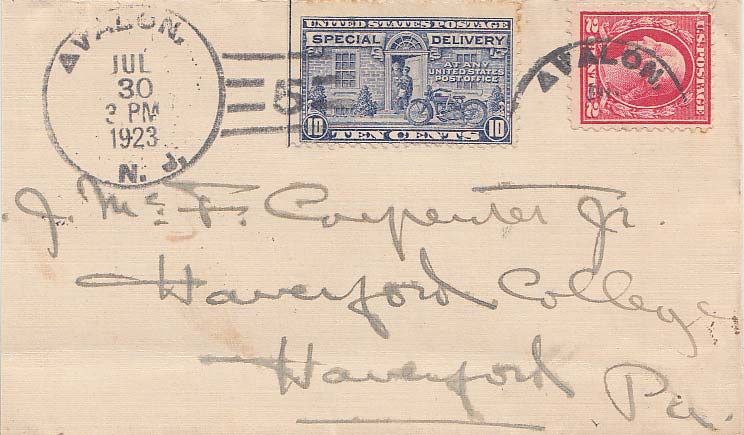 AVALON,
JUL
30
3 PM
1923
N. J.
UNITED STATES POSTAGE
SPECIAL DELIVERY
AT ANY
UNITED STATES
POST OFFICE
10 TEN CENTS 10
U.S. POSTAGE
AVALON,
J. McF. Carpenter Jr.
Haverford College
Haverford Pa.